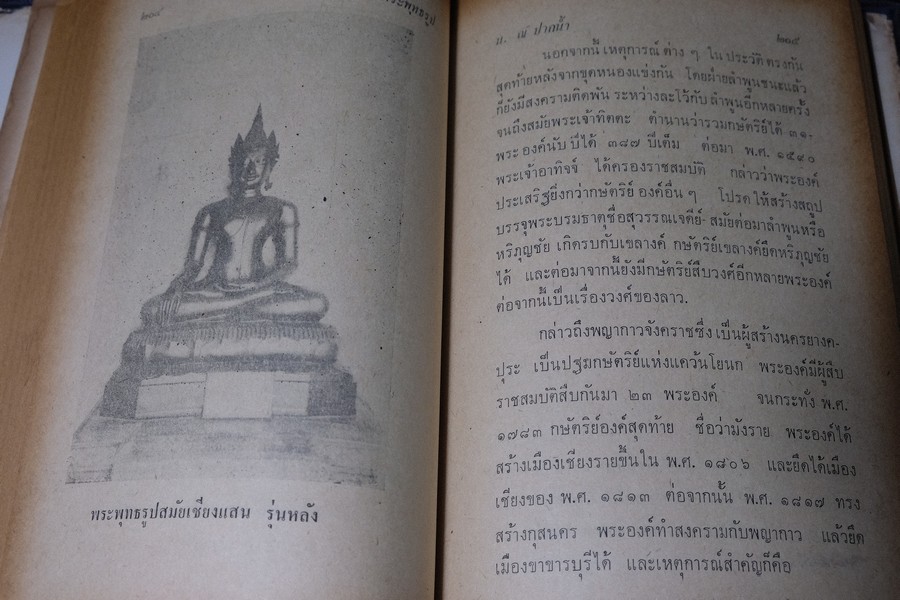 ๒๑๔
พระพุทธรูป
พระพุทธรูปสมัยเชียงแสน รุ่นหลัง
น. ณ ปากน้ำ
๒๑๕
นอกจากนี้ เหตุการณ์ ต่าง ๆ ใน ประวัติ ตรงกัน
สุดท้ายหลังจากขุดหนองแข่งกัน โดยฝ่ายลำพูนชนะแล้ว
ก็ยังมีสงครามติดพัน ระหว่างละโว้กับ ลำพูนอีกหลายครั้ง
จนถึงสมัยพระเจ้าทิตตะ ตำนานว่ารวมกษัตริย์ได้ ๓๑-
พระ องค์นับ ปีได้ ๓๘๗ ปีเต็ม ต่อมา พ.ศ. ๑๕๙๐
พระเจ้าอาทิจจ์ ได้ครองราชสมบัติ กล่าวว่าพระองค์
ประเสริฐยิ่งกว่ากษัตริย์ องค์อื่น ๆ โปรด ให้สร้างสถูป
บรรจุพระบรมธาตุชื่อสุวรรณเจดีย์- สมัยต่อมาลำพูนหรือ
หริภุญชัย เกิดรบกับเขลางค์ กษัตริย์เขลางค์ยึดหริภุญชัย
ได้ และต่อมาจากนี้ยังมีกษัตริย์สืบวงศ์อีกหลายพระองค์
ต่อจากนี้เป็นเรื่องวงศ์ของลาว.
กล่าวถึงพญากาวจังคราชซึ่ง เป็นผู้สร้างนครยางค-
ปุระ เป็นปฐมกษัตริย์แห่งแคว้นโยนก พระองค์มีผู้สืบ
ราชสมบัติสืบกันมา ๒๓ พระองค์ จนกระทั่ง พ.ศ.
๑๗๘๓ กษัตริย์องค์สุดท้าย ชื่อว่ามังราย พระองค์ได้
สร้างเมืองเชียงรายขึ้นใน พ.ศ. ๑๘๐๖ และยึดได้เมือง
เชียงของ พ.ศ. ๑๘๑๓ ต่อจากนั้น พ.ศ. ๑๘๑๗ ทรง
สร้างกุสนคร พระองค์ทำสงครามกับพญากาว แล้วยึด
เมืองขาขารบุรีได้ และเหตุการณ์สำคัญก็คือ